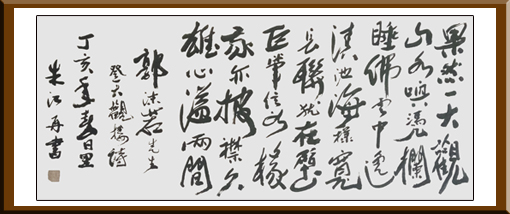 果然一大觀
山水喚憑欄
睡佛雲中逸
滇池海樣寬
長聯猶在壁
巨筆信如椽
我亦披襟久
雄心溢兩間
郭沫若先生
登大觀樓詩
丁亥春日
再書